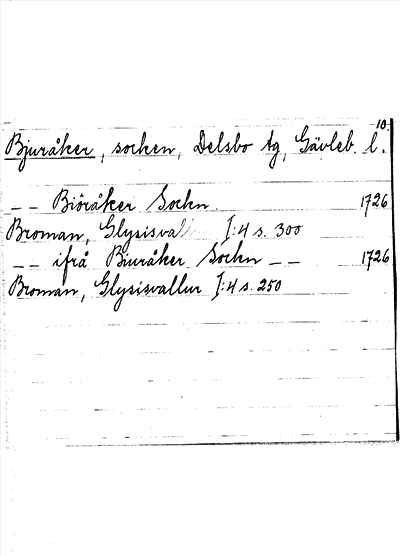 10.
Bjuråker, socken, Delsbo tg, Gävleb. l.
— — Biöråker Sockn 1726
Broman, Glysisval I:4 s. 300
— — ifrå Biuråker Sockn — — 1726
Broman, Glysisvallur I:4 s. 250